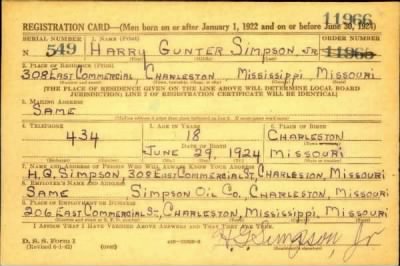 REGISTRATION CARD—(Men born on or after January 1, 1922 and on or before June 30, 1924)
11966
SERIAL NUMBER 1. NAME (Print) ORDER NUMBER
N 549 HARRY GUNTER SIMPSON, JR. 11966
2. PLACE OF RESIDENCE (Print)
308 EAST COMMERCIAL, CHARLESTON, MISSISSIPPI, MISSOURI
[THE PLACE OF RESIDENCE GIVEN ON THE LINE ABOVE WILL DETERMINE LOCAL BOARD
JURISDICTION; LINE 2 OF REGISTRATION CERTIFICATE WILL BE IDENTICAL]
3. MAILING ADDRESS
SAME
4. TELEPHONE 5. AGE IN YEARS 6. PLACE OF BIRTH
434 18 CHARLESTON
DATE OF BIRTH
JUNE 29 1924 MISSOURI
7. NAME AND ADDRESS OF PERSON WHO WILL ALWAYS KNOW YOUR ADDRESS
H.G. SIMPSON, 308 EAST COMMERCIAL ST, CHARLESTON, MISSOURI
8. EMPLOYER'S NAME AND ADDRESS
SAME SIMPSON OIL CO., CHARLESTON, MISSOURI
9. PLACE OF EMPLOYMENT OR BUSINESS
206 EAST COMMERCIAL ST., CHARLESTON, MISSISSIPPI, MISSOURI
I AFFIRM THAT I HAVE VERIFIED ABOVE ANSWERS AND THAT THEY ARE TRUE.
D. S. S. Form 1
HG Simpson, Jr